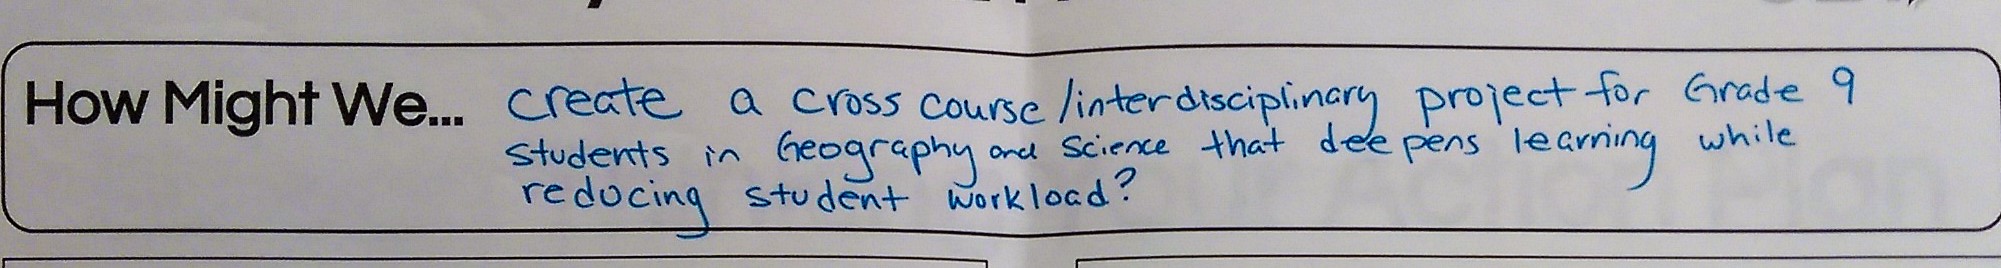 How Might We... create a cross course/interdisciplinary project for Grade 9
students in Geography and Science that deepens learning while
reducing student workload?